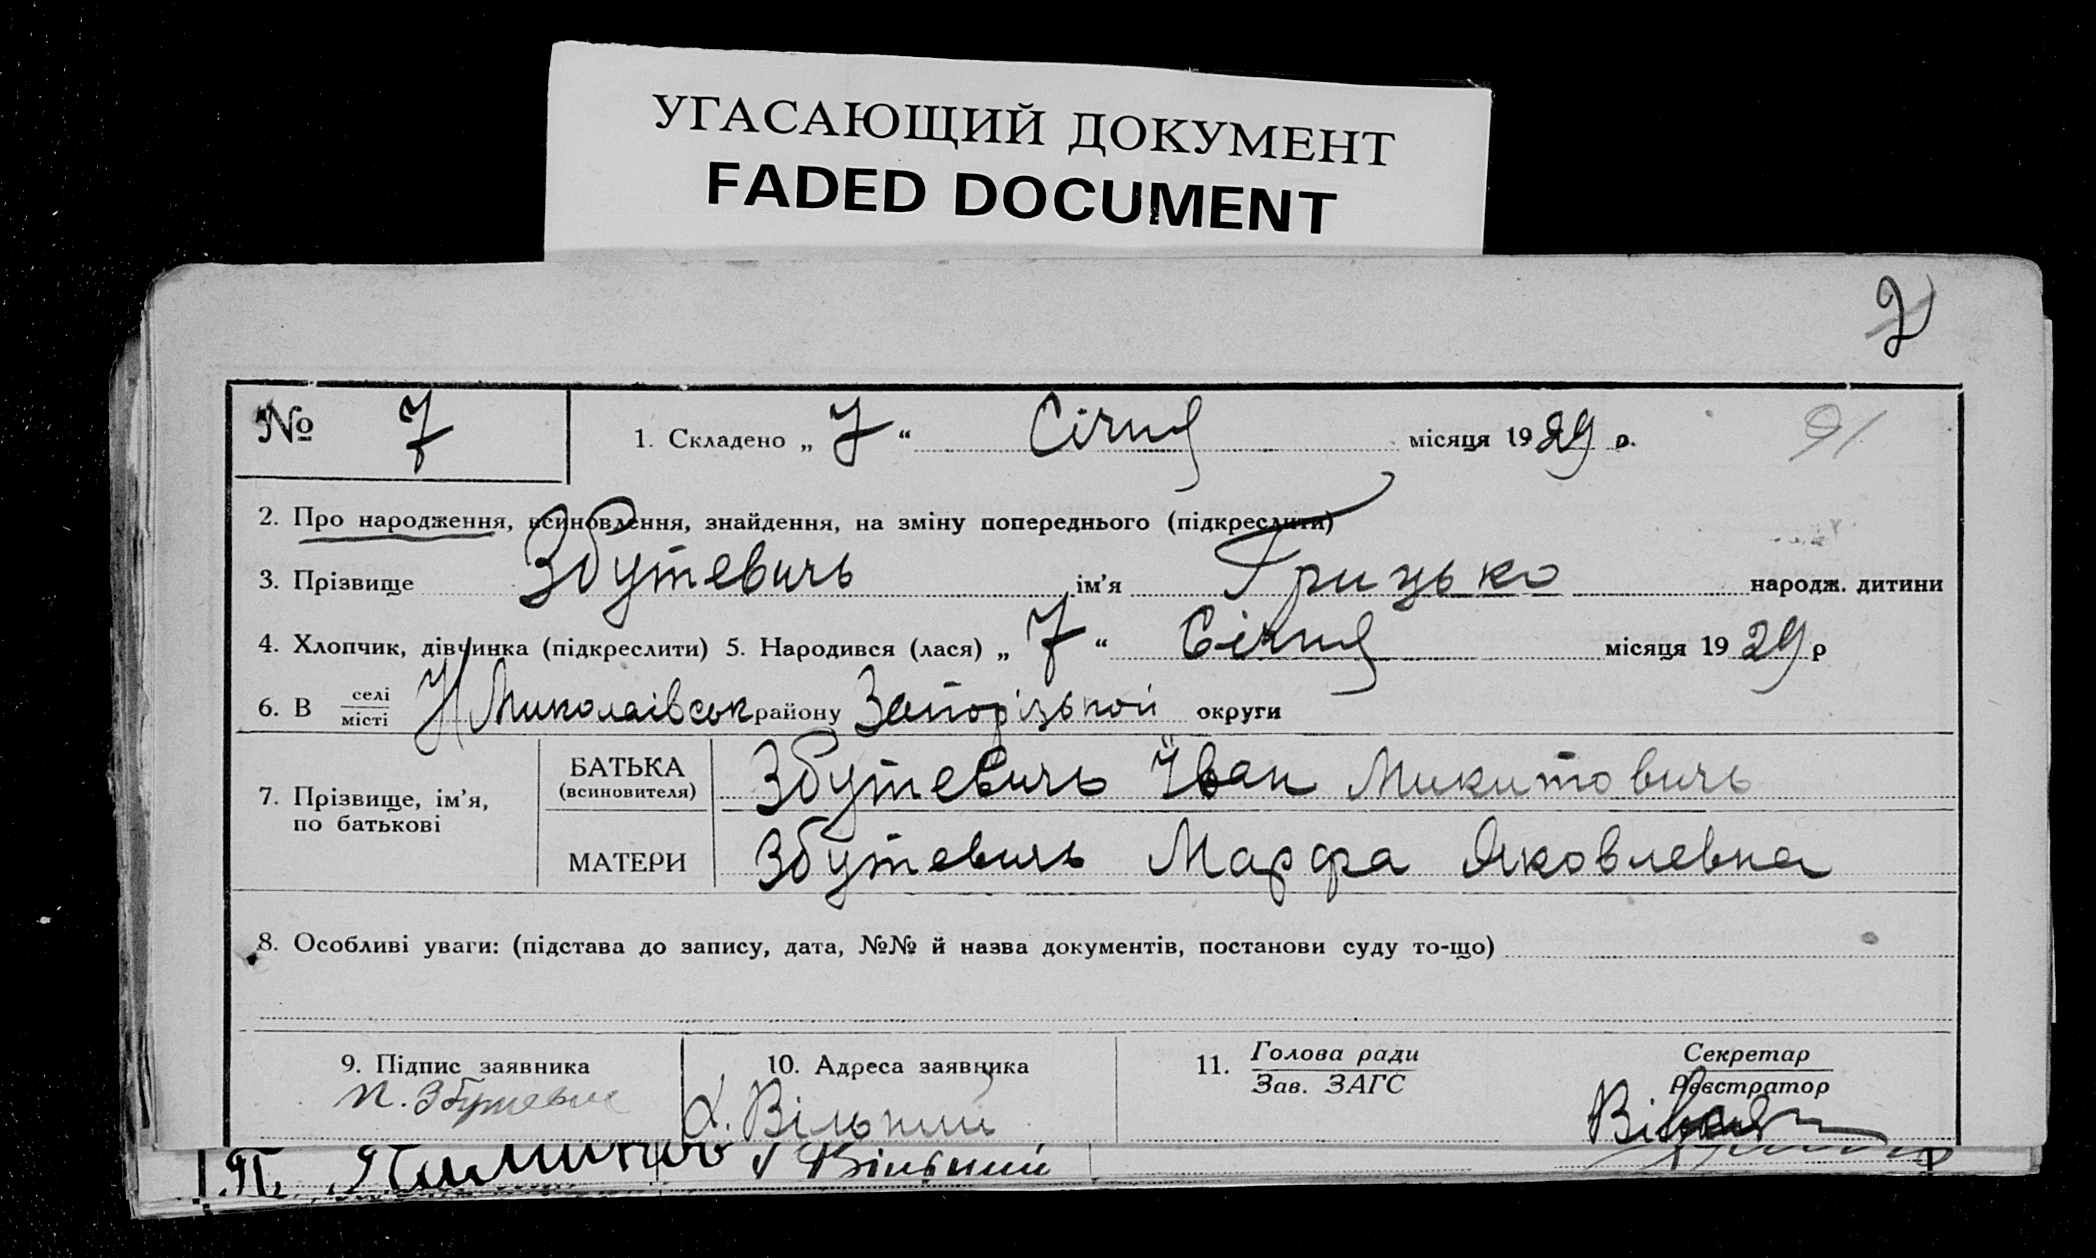 УГАСАЮЩИЙ ДОКУМЕНТ
FADED DOCUMENT
2
№ 7
1. Складено „ 7 “ Січня місяця 1929 р.
91
2. Про народження, всиновлення, знайдення, на зміну попереднього (підкреслити)
3. Прізвище Збутевичь ім'я Грицько народж. дитини
4. Хлопчик, дівчинка (підкреслити) 5. Народився (лася) „ 7 “ Січня місяця 1929 р
6. В селі місті Н Миколаівськ району Запорізькой округи
7. Прізвище, ім'я, по батькові
БАТЬКА (всиновителя) Збутевичь Іван Микитовичь
МАТЕРИ Збутевичь Марфа Яковлевна
8. Особливі уваги: (підстава до запису, дата, №№ й назва документів, постанови суду то-що)
9. Підпис заявника
10. Адреса заявника
11. Голова ради Зав. ЗАГС
Секретар Реєстратор
п. Збутевич
х. Вільний
Вільний